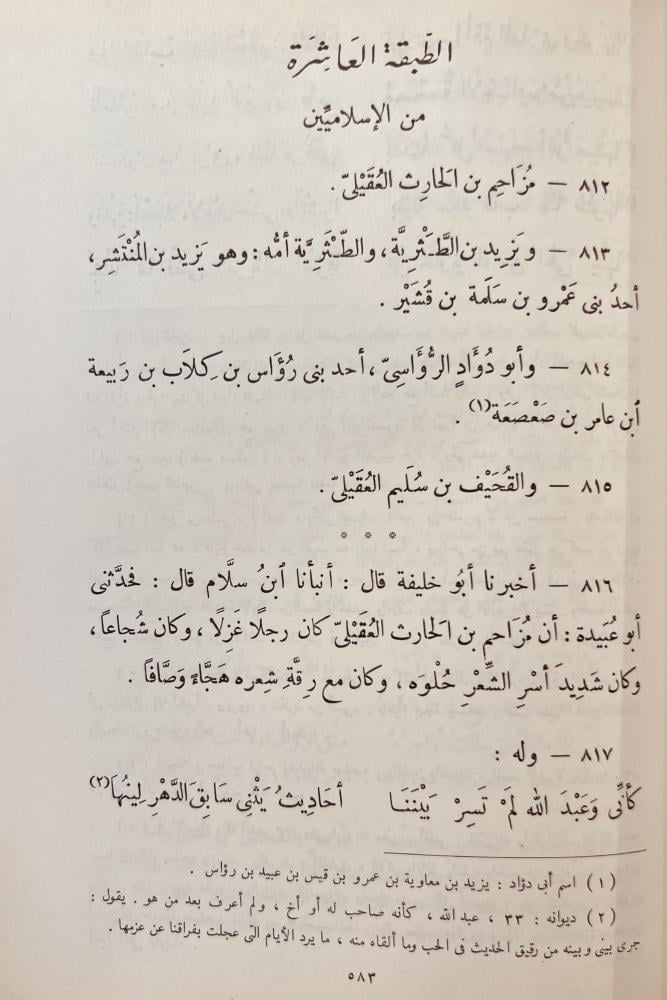 الطّبقة العَاشِرَة
من الإسلاميِّين
٨١٢ — مُزَاحِم بن الحارِث العُقَيْلِىّ .
٨١٣ — ويَزِيد بن الطَّـثْرِيَّة ، والطَّـثْرِيَّة أمُّه : وهو يَزيد بن المُنْتَشِر ،
أحدُ بنى عَمْرو بن سَلَمة بن قُشَيْر .
٨١٤ — وأبو دُوَادٍ الرُّؤَاسِىّ ، أحد بنى رُؤَاس بن كِلَاب بن رَبيعة
ٱبن عامر بن صَعْصَعَة (١) .
٨١٥ — والقُحَيْف بن سُلَيم العُقَيْلىّ .
* * *
٨١٦ — أخبرنا أبُو خليفة قال : أنبأنا ٱبنُ سلَّام قال : فحدَّثنى
أبو عُبَيدة : أن مُزَاحم بن الحارث العُقَيْلىّ كان رجلًا غَزِلًا ، وكان شُجاعاً ،
وكان شَديدَ أسْرِ الشِّعْرِ حُلْوَه ، وكان مع رِقَّةِ شِعره هَجَّاءً وَصَّافاً .
٨١٧ — وله :
كأنِّى وَعَبْدَ الله لَمْ تَسِرْ بَيْنَنَا أحَادِيثُ يَثْنِى سَابِقَ الدَّهْرِ لِينُهَا (٢)
(١) اسم أبى دؤاد : يزيد بن معاوية بن عمرو بن قيس بن عبيد بن رؤاس .
(٢) ديوانه : ٣٣ ، عبد الله ، كأنه صاحب له أو أخ ، ولم أعرف بعد من هو . يقول :
جرى بينى وبينه من رقيق الحديث فى الحب وما ألقاه منه ، ما يرد الأيام التى عجلت بفراقنا عن عزمها .
٥٨٣